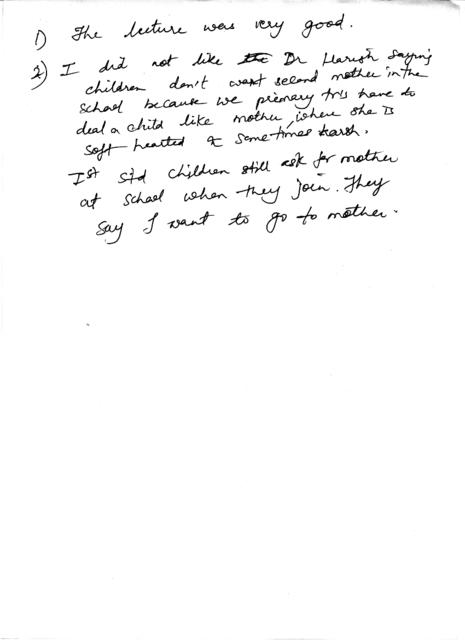 1) The lecture was very good.
2) I did not like the Dr Harish saying
children don't want second mother in the
school because we primary trs have to
deal a child like mother, where she is
soft hearted & sometimes harsh.
Ist std children still ask for mother
at school when they join. They
say I want to go to mother.